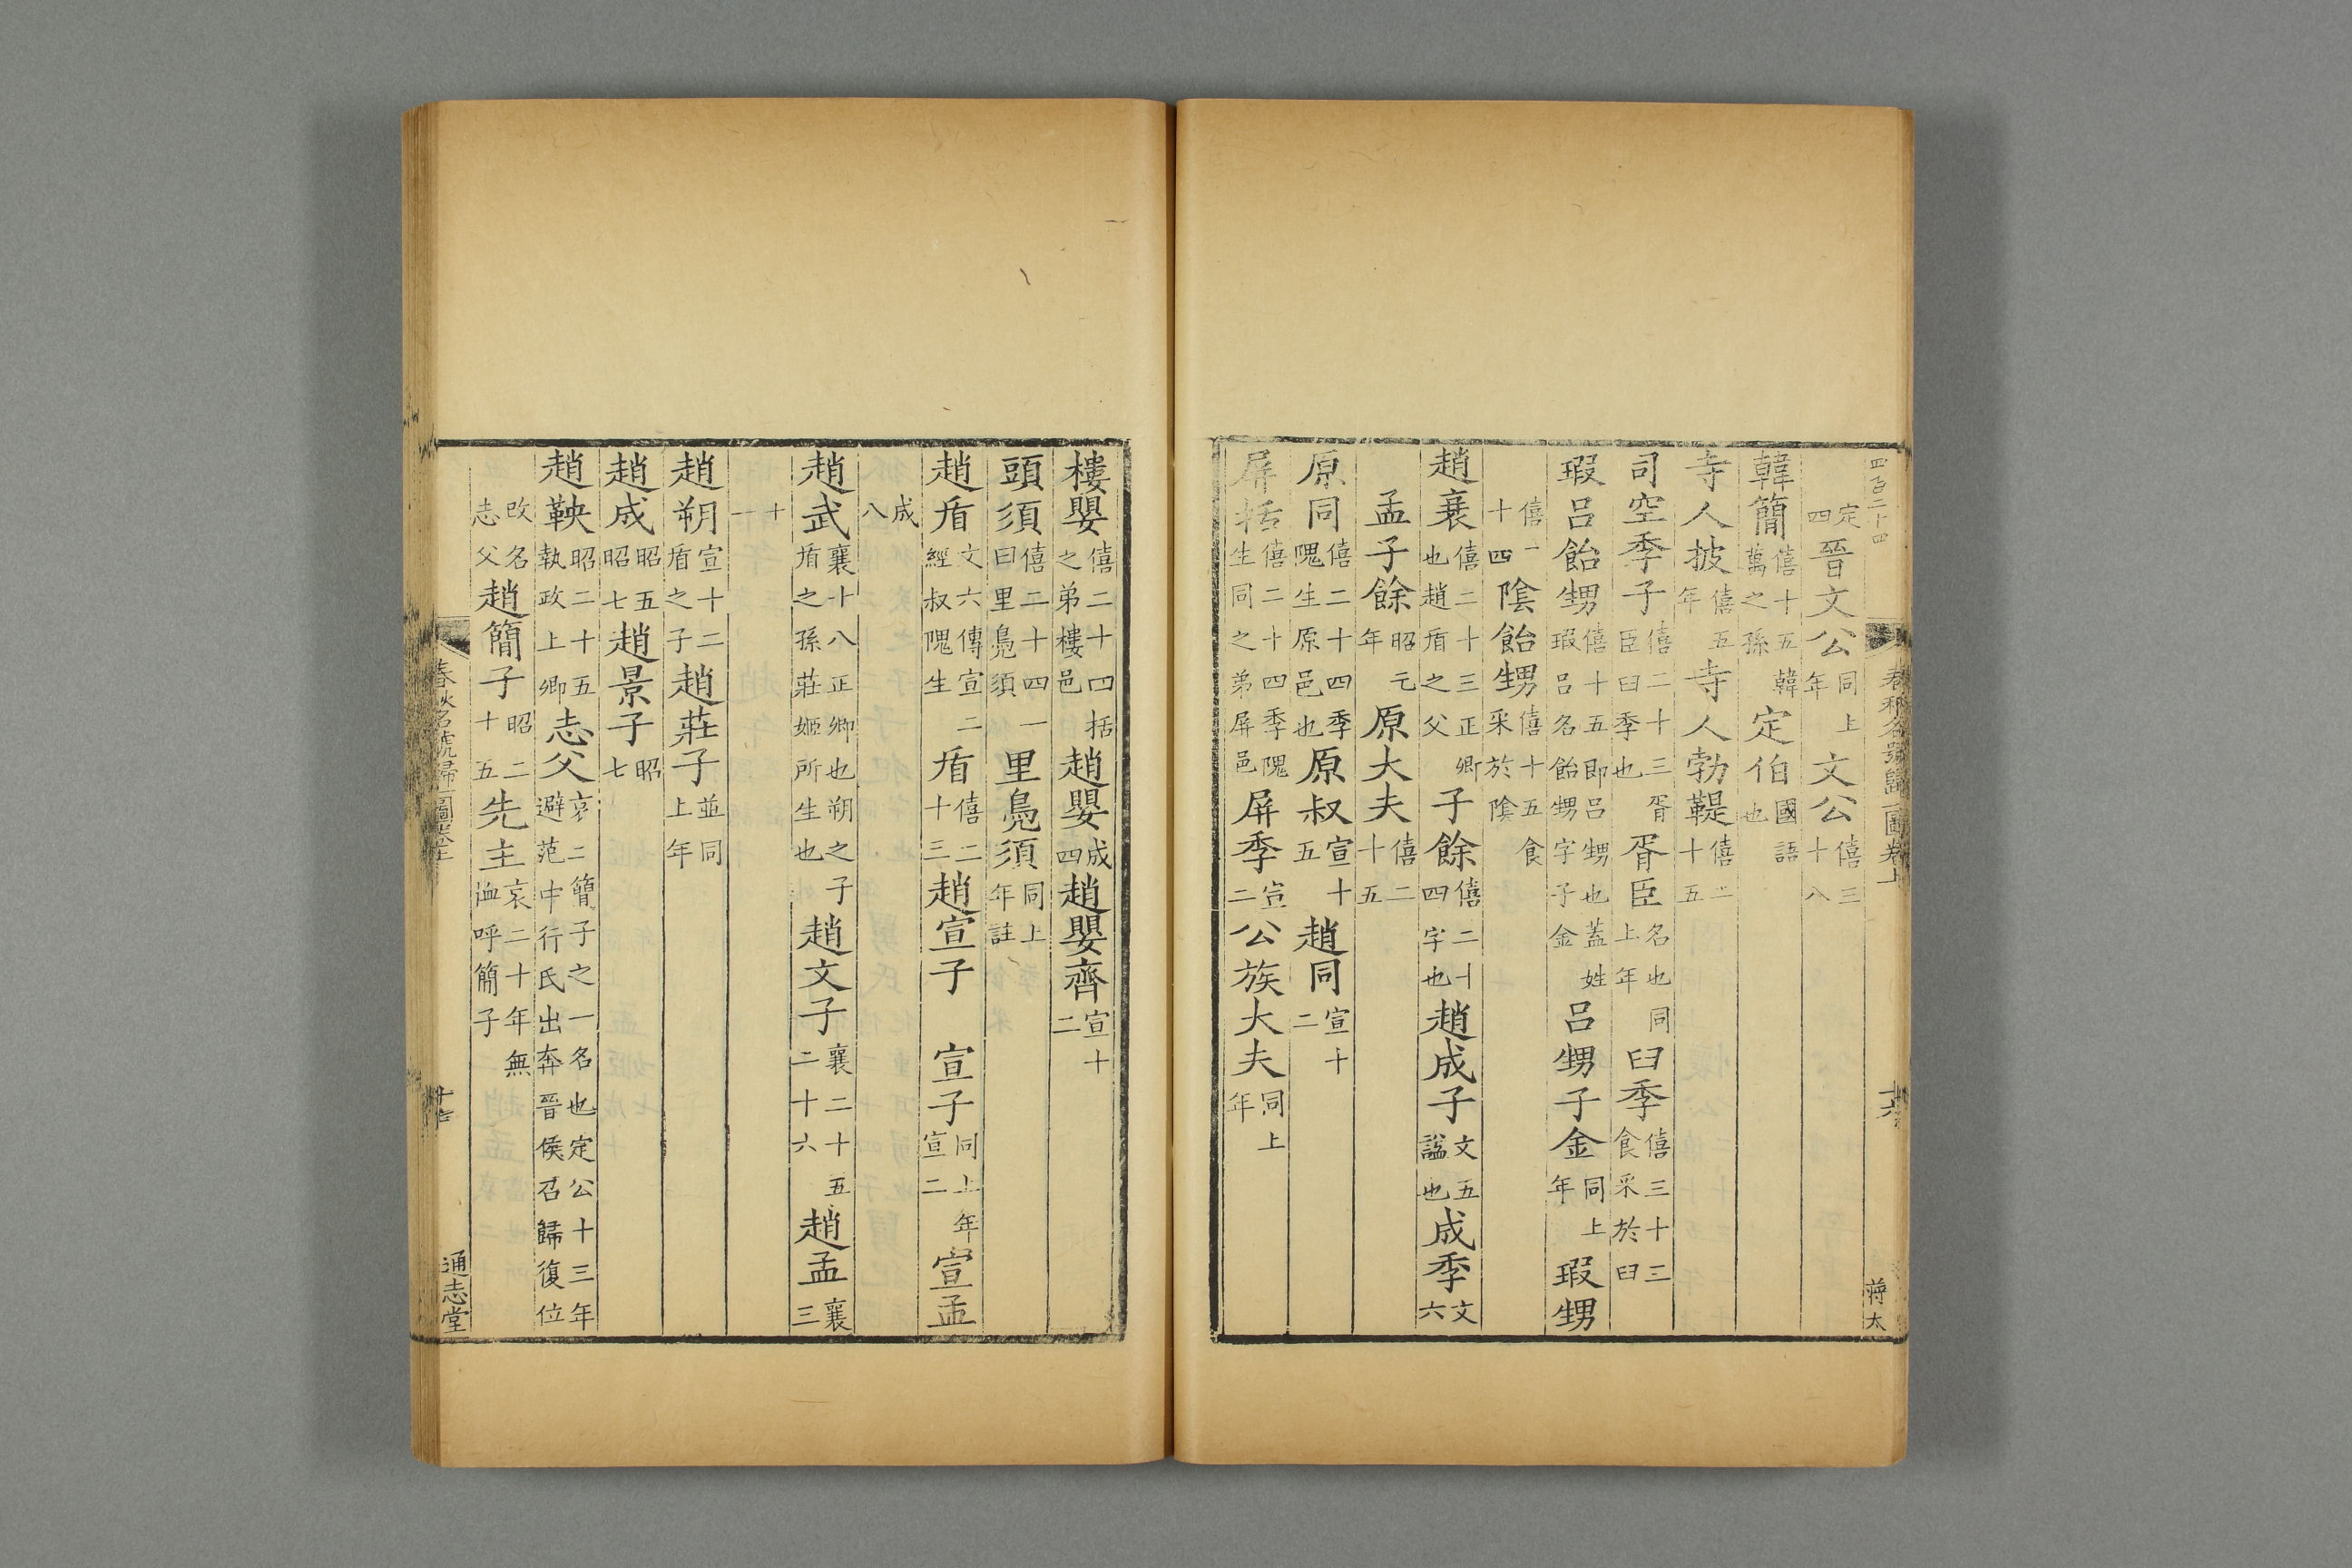 四百二十四
春秋名號歸一圖卷上 十六 蔣太
定四晉文公同上年文公僖三十八
韓簡僖十五韓萬之孫定伯國語也
寺人披僖五年寺人勃鞮僖二十五
司空季子僖二十三胥臣曰季也胥臣名也同上年臼季僖三十三食采於臼
瑕呂飴甥僖十五即呂甥也蓋姓瑕呂名飴甥字子金呂甥子金同上年瑕甥
僖二十四陰飴甥僖十五食采於陰
趙衰僖二十三正卿也趙盾之父子餘僖二十四字也趙成子文五諡也成季文六
孟子餘昭元年原大夫僖二十五
原同僖二十四季隗生原邑也原叔宣十五趙同宣十二
屏括僖二十四季隗生同之弟屏邑屏季宣二公族大夫同上年
樓嬰僖二十四括之弟樓邑趙嬰成四趙嬰齊宣十二
頭須僖二十四一曰里鳧須里鳧須同上年註
趙盾文六傳宣二經叔隗生盾僖二十三趙宣子 宣子同上年宣二宣孟
成八
趙武襄十八正卿也朔之子盾之孫莊姬所生也趙文子襄二十五二十六趙孟襄三
十一
趙朔宣十二盾之子趙莊子並同上年
趙成昭五昭七趙景子昭七
趙鞅昭二十五執政上卿志父哀二簡子之一名也定公十三年避范中行氏出奔晉侯召歸復位
改名志父趙簡子昭二十五先主哀二十年無恤呼簡子
春秋名號歸一圖卷上 十七 通志堂